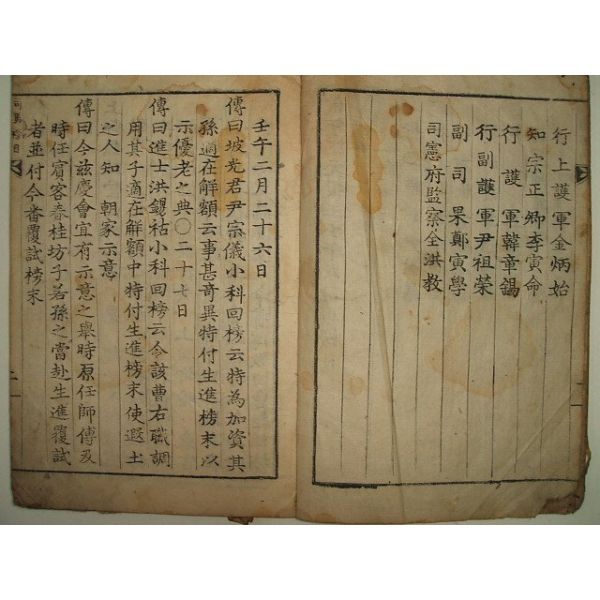 行上護軍金炳始
知宗正卿李寅命
行護軍韓章錫
行副護軍尹祖榮
副司果鄭寅學
司憲府監察全洪教
壬午二月二十六日
傳曰坡光君尹宗儀小科回榜云特為加資其
孫適在解額云事甚奇異特付生進榜末以
示優老之典〇二十七日
傳曰進士洪錫祜小科回榜云令該曹右職調
用其子適在解額中特付生進榜末使遐土
之人知 朝家示意
傳曰今茲慶會宜有示意之舉時原任師傅及
時任賓客春桂坊子若孫之當赴生進覆試
者並付今番覆試榜末
二